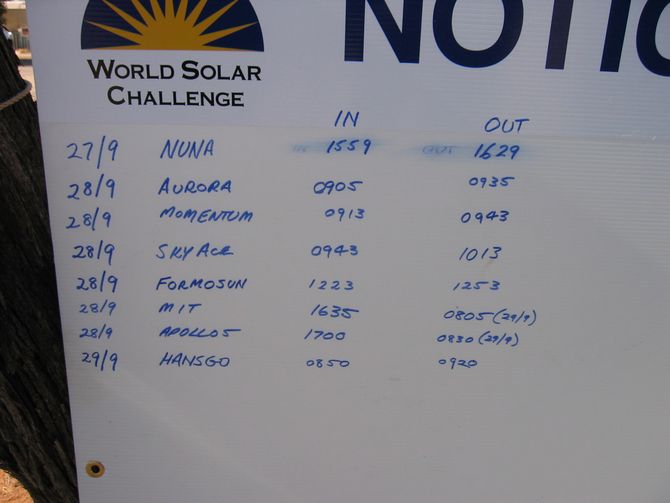 NOTIC
WORLD SOLAR
CHALLENGE
IN OUT
27/9 NUNA 1559 OUT 1629
28/9 AURORA 0905 0935
28/9 MOMENTUM 0913 0943
28/9 SKY ACE 0943 1013
28/9 FORMOSUN 1223 1253
28/9 MIT 1635 0805 (29/9)
28/9 APOLLO5 1700 0830 (29/9)
29/9 HANSGO 0850 0920